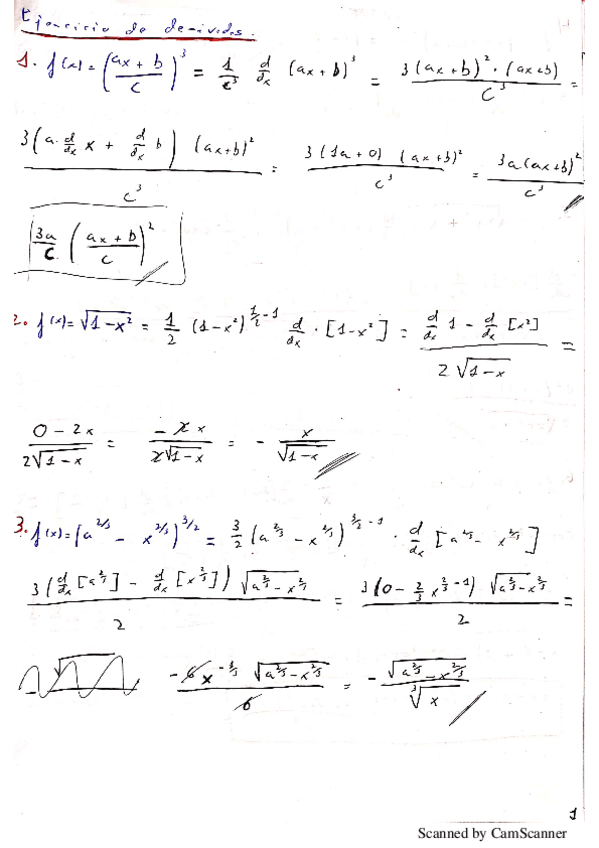 Ejercicio de derivadas.
1. f(x) = ((ax + b)/c)^3 = 1/c^3 d/dx (ax + b)^3 = 3(ax + b)^2 · (ax+b)/c^3 =
3(a · d/dx x + d/dx b) (ax+b)^2/c^3 = 3(1a + 0) (ax+b)^2/c^3 = 3a(ax+b)^2/c^3
3a/c ((ax + b)/c)^2
2. f(x) = √(1-x²) = 1/2 (1-x²)^(1/2 - 1) d/dx · [1-x²] = (d/dx 1 - d/dx [x²])/(2√(1-x)) =
(0 - 2x)/(2√(1-x)) = (-2x)/(2√(1-x)) = - x/√(1-x)
3. f(x) = [a^(2/3) - x^(2/3)]^(3/2) = 3/2 (a^(2/3) - x^(2/3))^(3/2 - 1) · d/dx [a^(2/3) - x^(2/3)]
3(d/dx [a^(2/3)] - d/dx [x^(2/3)]) √(a^(2/3) - x^(2/3))/2 = 3(0 - 2/3 x^(2/3 - 1)) √(a^(2/3) - x^(2/3))/2 =
-6x^(-1/3) √(a^(2/3) - x^(2/3))/6 = - √(a^(2/3) - x^(2/3))/∛x
1
Scanned by CamScanner